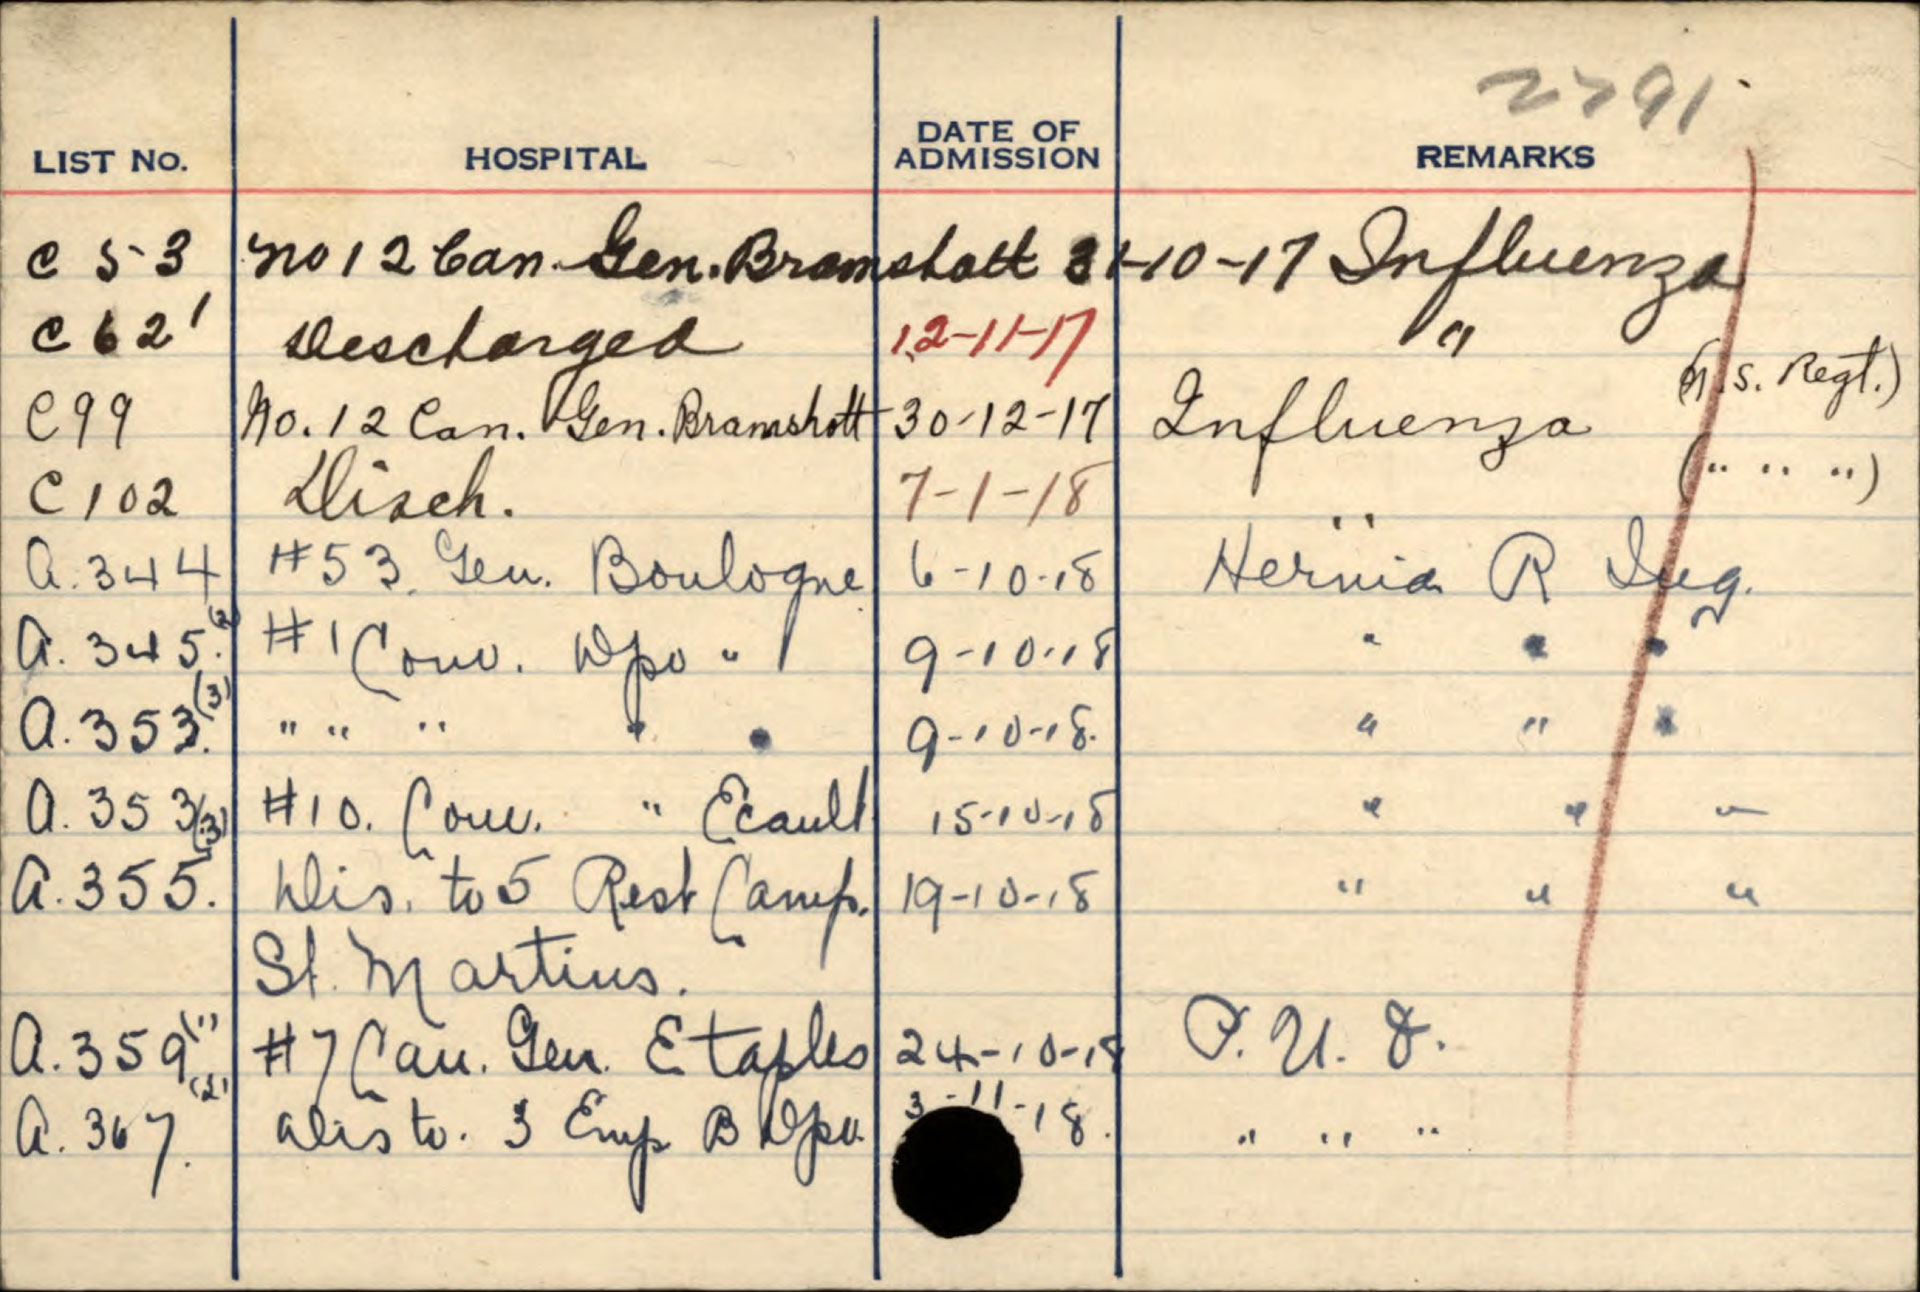 2791
LIST No. HOSPITAL DATE OF ADMISSION REMARKS
C 53 No 12 Can. Gen. Bramshott 31-10-17 Influenza
C 62' Descharged 12-11-17 "
C 99 No. 12 Can. Gen. Bramshott 30-12-17 Influenza (N.S. Regt.)
C 102 Disch. 7-1-18 " (" " ")
A. 344 #53. Gen. Boulogne 6-10-18 Hernia R Ing.
A. 345. (2) #1 Conv. Dpo " 9-10-18 " " "
A. 353. (3) " " " " " 9-10-18. " " "
A. 353 (3) #10. Conv. " Ecault 15-10-18 " " "
A. 355. Dis. to 5 Rest Camp. 19-10-18 " " "
St. Martins.
A. 359 (1) #7 Can. Gen. Etaples 24-10-18 P. U. O.
A. 367. (2) Dis to. 3 Emp B Dpo. 3-11-18. " " "